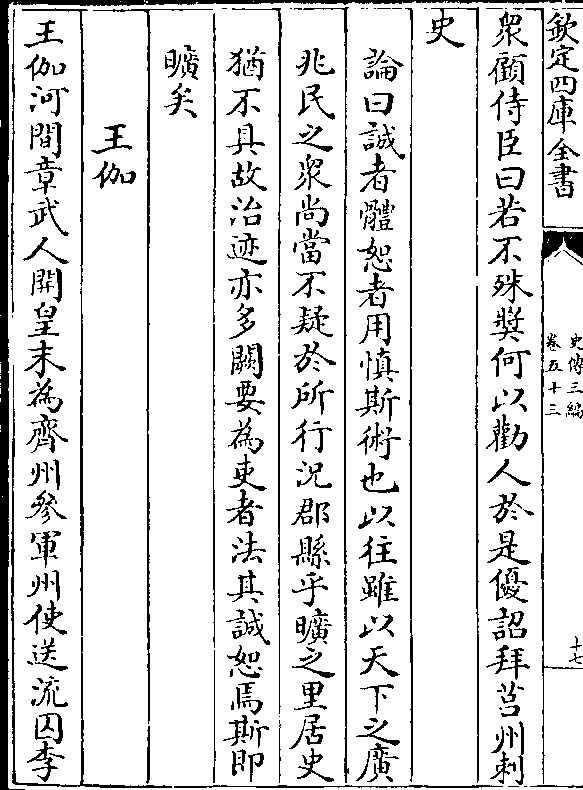 欽定四庫全書
史傳三編
卷五十三
十七
衆顧侍臣曰若不殊奬何以勸人於是優詔拜莒州刺
史
論曰誠者體恕者用慎斯術也以往雖以天下之廣
兆民之衆尚當不疑於所行況郡縣乎曠之里居史
猶不具故治迹亦多闕要為吏者法其誠恕焉斯即
曠矣
王伽
王伽河間章武人開皇末為齊州參軍州使送流囚李